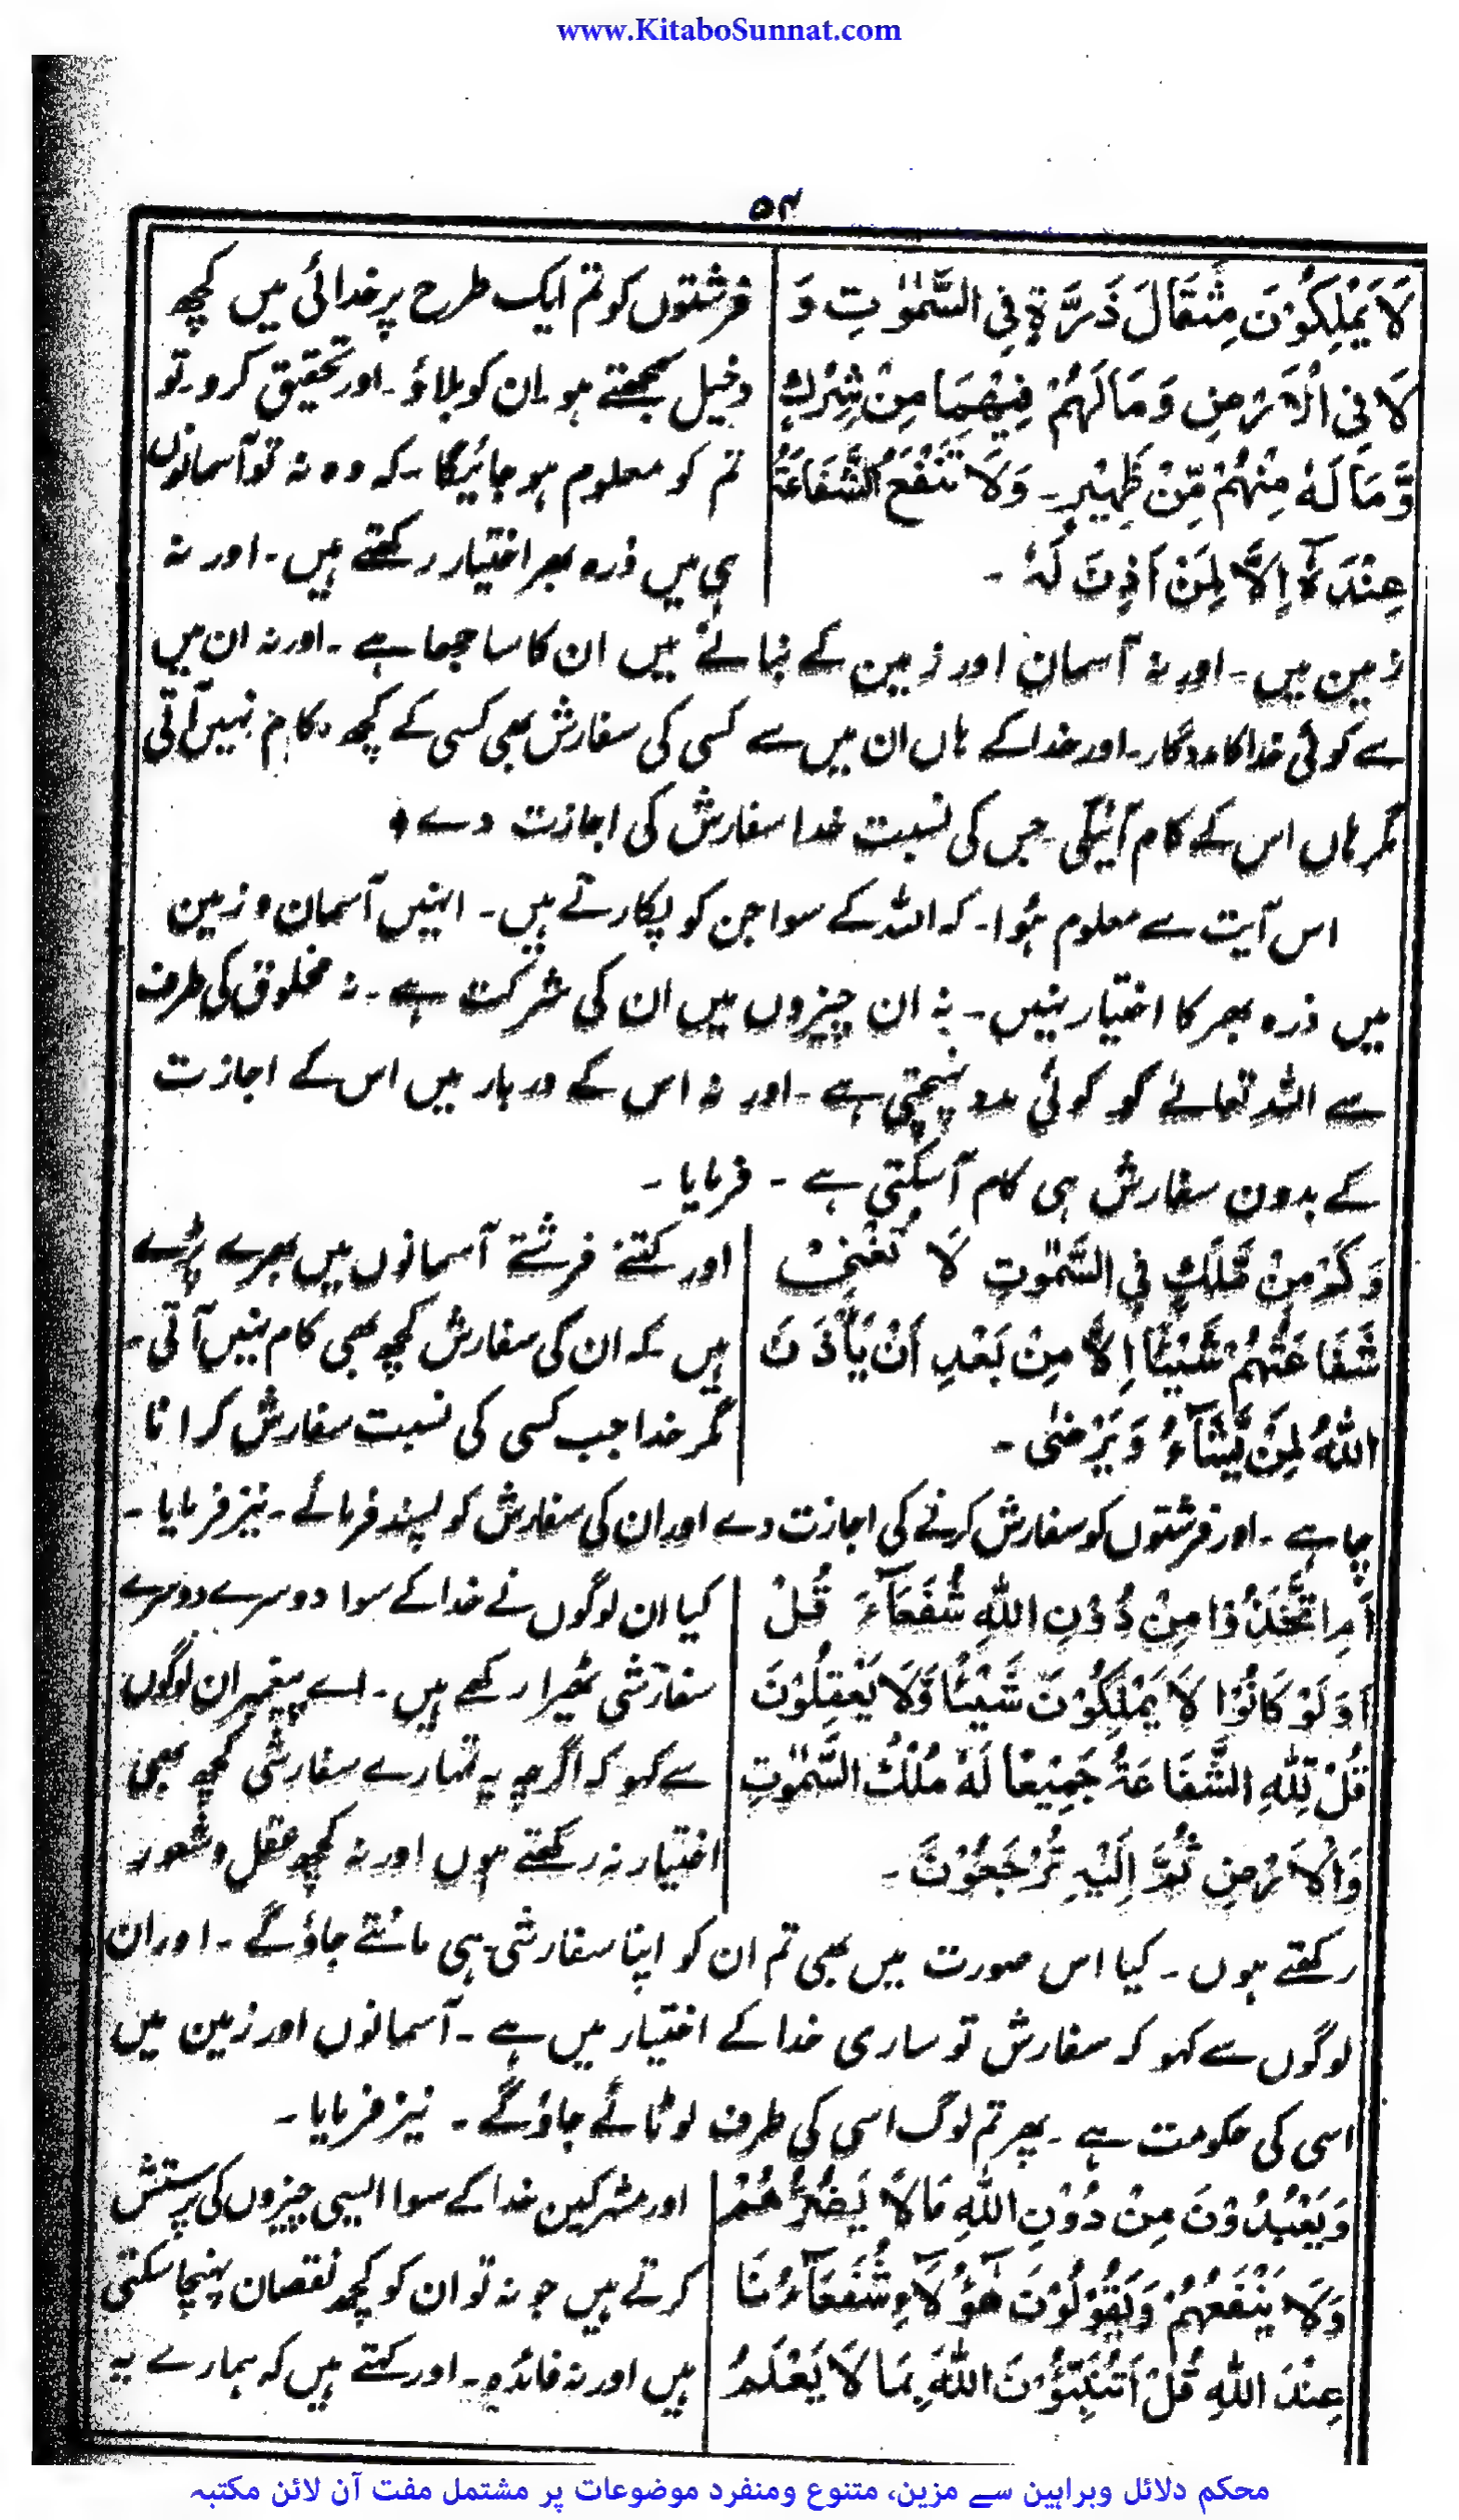 www.KitaboSunnat.com
۵۴
لَا يَمْلِكُوْنَ مِثْقَالَ ذَرَّةٍ فِى السَّمٰوٰتِ وَ
لَا فِى الْاَرْضِ وَمَا لَهُمْ فِيْهِمَا مِنْ شِرْكٍ
وَّمَا لَهٗ مِنْهُمْ مِّنْ ظَهِيْرٍ۔ وَلَا تَنْفَعُ الشَّفَاعَةُ
عِنْدَهٗٓ اِلَّا لِمَنْ اَذِنَ لَهٗ ۔
فرشتوں کو تم ایک طرح پر خدائی میں کچھ
دخیل سمجھتے ہو۔ ان کو بلاؤ۔ اور تحقیق کرو۔ تو
تم کو معلوم ہو جائیگا۔ کہ وہ نہ تو آسمانوں
ہی میں ذرہ بھر اختیار رکھتے ہیں۔ اور نہ
زمین میں۔ اور نہ آسمان اور زمین کے بنانے میں ان کا ساجھا ہے۔ اور نہ ان میں
سے کوئی خدا کا مددگار۔ اور خدا کے ہاں ان میں سے کسی کی سفارش بھی کسی کے کچھ کام نہیں آتی
مگر ہاں اس کے کام آئیگی۔ جس کی نسبت خدا سفارش کی اجازت دے ۔
اس آیت سے معلوم ہُوا۔ کہ اللہ کے سوا جن کو پکارتے ہیں۔ انہیں آسمان و زمین
میں ذرہ بھر کا اختیار نہیں۔ نہ ان چیزوں میں ان کی شرکت ہے۔ نہ مخلوق کی طرف
سے اللہ تعالےٰ کو کوئی مدد پہنچتی ہے۔ اور نہ اس کے دربار میں اس کے اجازت
کے بدون سفارش ہی کام آسکتی ہے ۔ فرمایا ۔
وَكَمْ مِنْ مَّلَكٍ فِى السَّمٰوٰتِ لَا تُغْنِىْ
شَفَاعَتُهُمْ شَيْئًا اِلَّا مِنْ بَعْدِ اَنْ يَّأْذَنَ
اللّٰهُ لِمَنْ يَّشَآءُ وَيَرْضٰى ۔
اور کتنے فرشتے آسمانوں میں بھرے پڑے
ہیں کہ ان کی سفارش کچھ بھی کام نہیں آتی۔
مگر خدا جب کسی کی نسبت سفارش کرانا
چاہے ۔ اور فرشتوں کو سفارش کرنے کی اجازت دے اور ان کی سفارش کو پسند فرمائے۔ نیز فرمایا ۔
اَمِ اتَّخَذُوْا مِنْ دُوْنِ اللّٰهِ شُفَعَآءَ قُلْ
اَوَلَوْ كَانُوْا لَا يَمْلِكُوْنَ شَيْئًا وَّلَا يَعْقِلُوْنَ
قُلْ لِّلّٰهِ الشَّفَاعَةُ جَمِيْعًا لَهٗ مُلْكُ السَّمٰوٰتِ
وَالْاَرْضِ ثُمَّ اِلَيْهِ تُرْجَعُوْنَ ۔
کیا ان لوگوں نے خدا کے سوا دوسرے دوسرے
سفارشی ٹھیرا رکھے ہیں۔ اے پیغمبر ان لوگوں
سے کہو کہ اگرچہ یہ تمہارے سفارشی کچھ بھی
اختیار نہ رکھتے ہوں اور نہ کچھ عقل و شعور
رکھتے ہوں۔ کیا اس صورت میں بھی تم ان کو اپنا سفارشی ہی مانتے جاؤ گے ۔ اور ان
لوگوں سے کہو کہ سفارش تو ساری خدا کے اختیار میں ہے۔ آسمانوں اور زمین میں
اسی کی حکومت ہے ۔ پھر تم لوگ اسی کی طرف لوٹائے جاؤ گے ۔ نیز فرمایا ۔
وَيَعْبُدُوْنَ مِنْ دُوْنِ اللّٰهِ مَا لَا يَضُرُّهُمْ
وَلَا يَنْفَعُهُمْ وَيَقُوْلُوْنَ هٰٓؤُلَآءِ شُفَعَآءُنَا
عِنْدَ اللّٰهِ قُلْ اَتُنَبِّئُوْنَ اللّٰهَ بِمَا لَا يَعْلَمُ
اور مشرکین خدا کے سوا ایسی چیزوں کی پرستش
کرتے ہیں جو نہ تو ان کو کچھ نقصان پہنچا سکتی
ہیں اور نہ فائدہ۔ اور کہتے ہیں کہ ہمارے یہ
محکم دلائل وبراہین سے مزین، متنوع ومنفرد موضوعات پر مشتمل مفت آن لائن مکتبہ